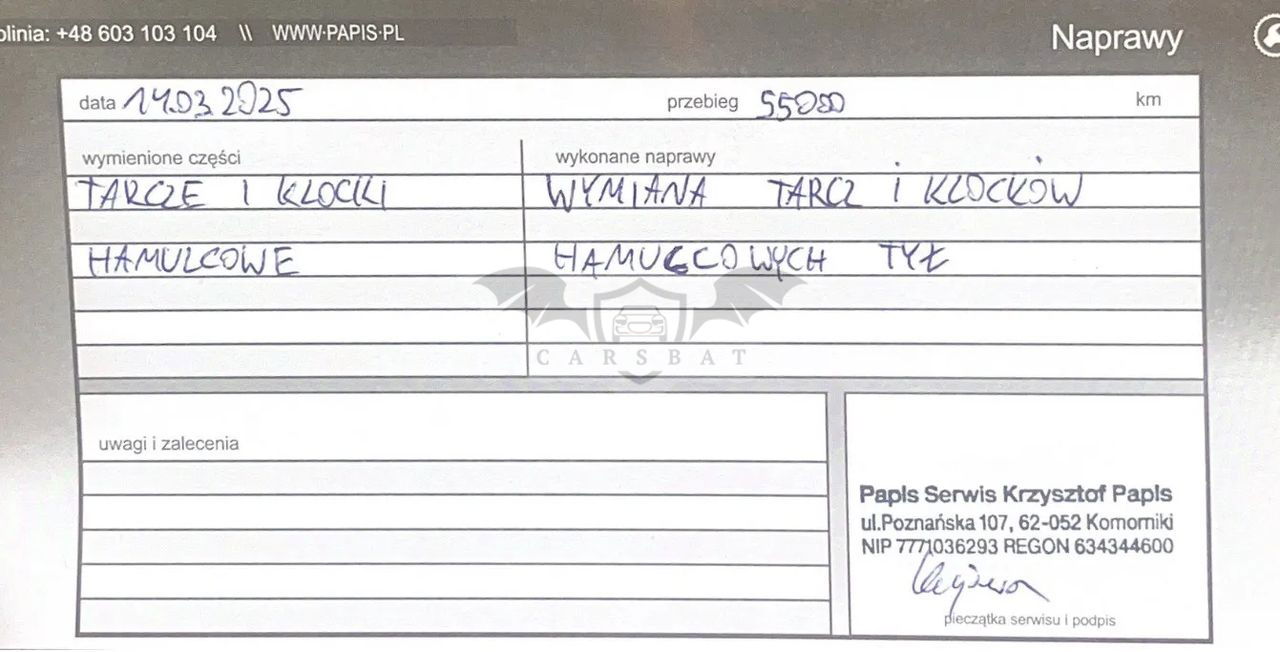 olinia: +48 603 103 104 \\ WWW.PAPIS.PL
Naprawy
data 14.03.2025 przebieg 55000 km
wymienione części wykonane naprawy
TARCZE I KLOCKI WYMIANA TARCZ i KLOCKÓW
HAMULCOWE HAMULCOWYCH TYŁ
CARSBAT
uwagi i zalecenia
Papis Serwis Krzysztof Papis
ul.Poznańska 107, 62-052 Komorniki
NIP 7771036293 REGON 634344600
pieczątka serwisu i podpis